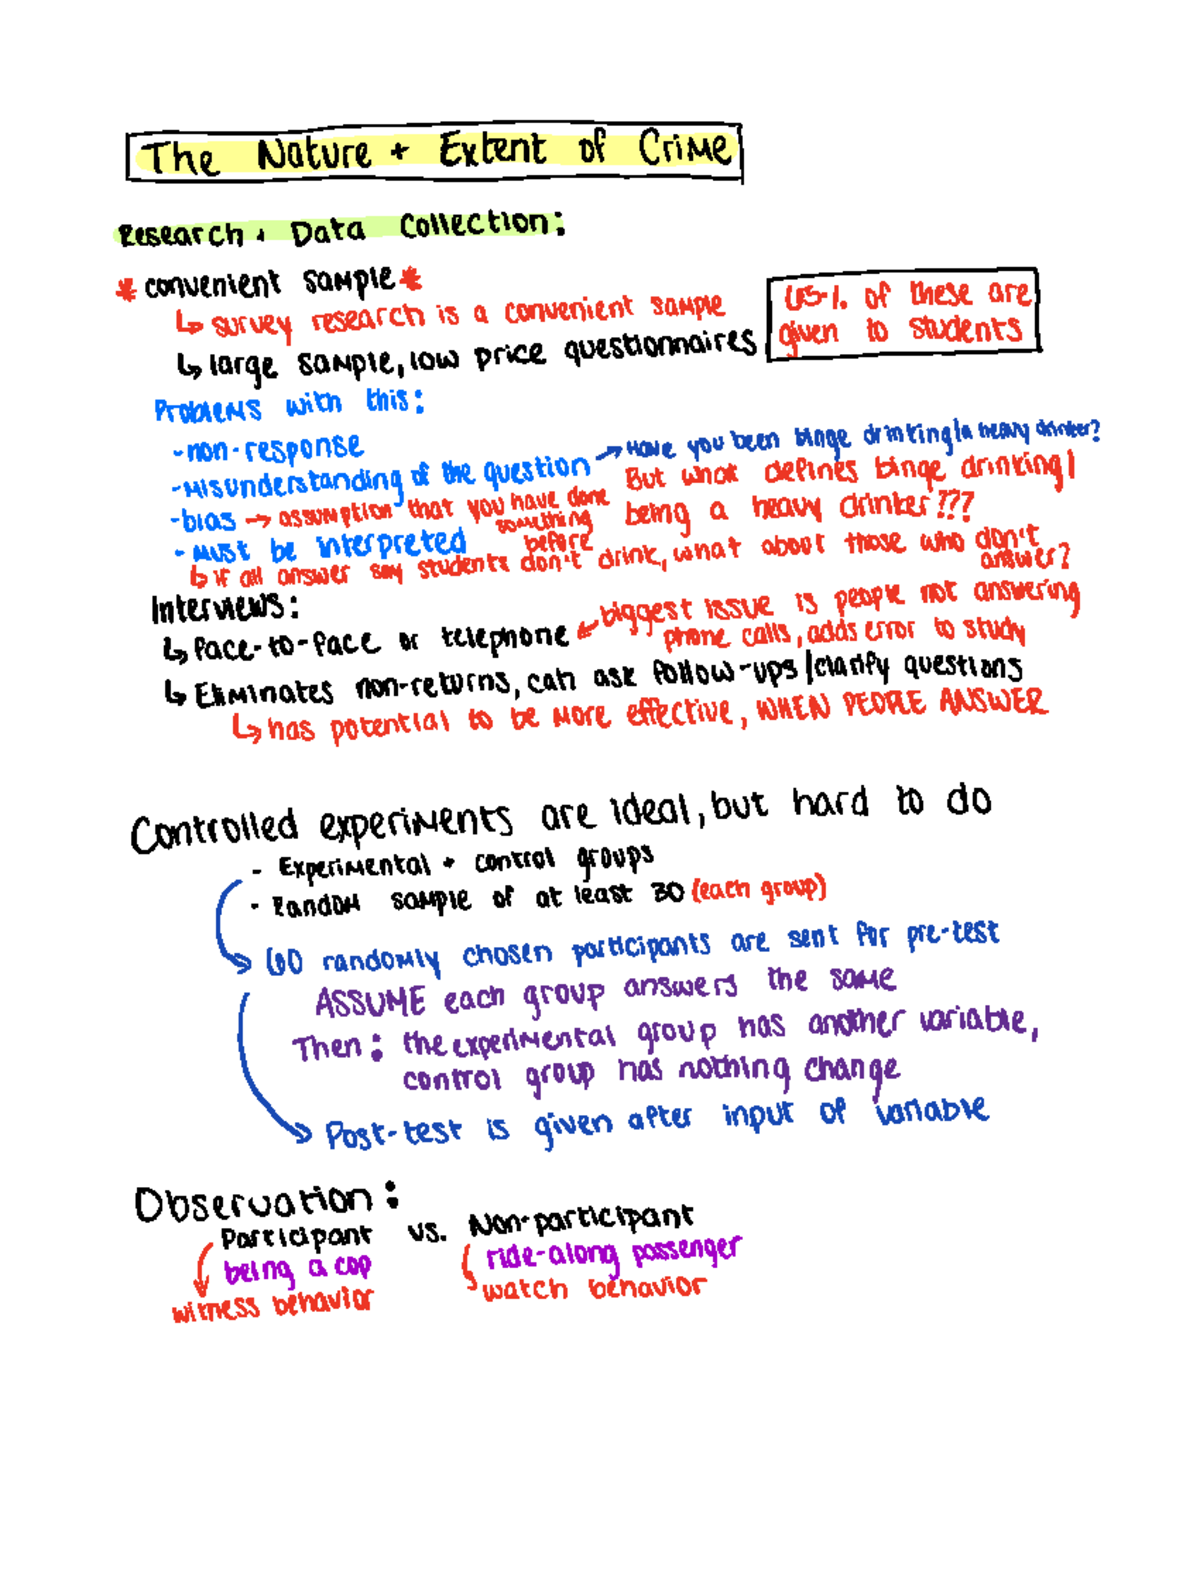 The Nature + Extent of Crime
Research + Data Collection:
* convenient sample *
↳ survey research is a convenient sample
↳ large sample, low price questionnaires
65% of these are
given to students
Problems with this:
- non-response
- misunderstanding of the question → Have you been binge drinking/a heavy drinker?
But what defines binge drinking/
being a heavy drinker???
- bias → assumption that you have done
something
before
- must be interpreted
↳ if all answer say students don't drink, what about those who don't
answer?
Interviews:
↳ face-to-face or telephone ← biggest issue is people not answering
phone calls, adds error to study
↳ Eliminates non-returns, can ask follow-ups/clarify questions
↳ has potential to be more effective, WHEN PEOPLE ANSWER
Controlled experiments are ideal, but hard to do
- Experimental + control groups
- Random sample of at least 30 (each group)
→ 60 randomly chosen participants are sent for pre-test
ASSUME each group answers the same
Then: the experimental group has another variable,
control group has nothing change
→ Post-test is given after input of variable
Observation:
Participant vs. Non-participant
being a cop
ride-along passenger
witness behavior
watch behavior